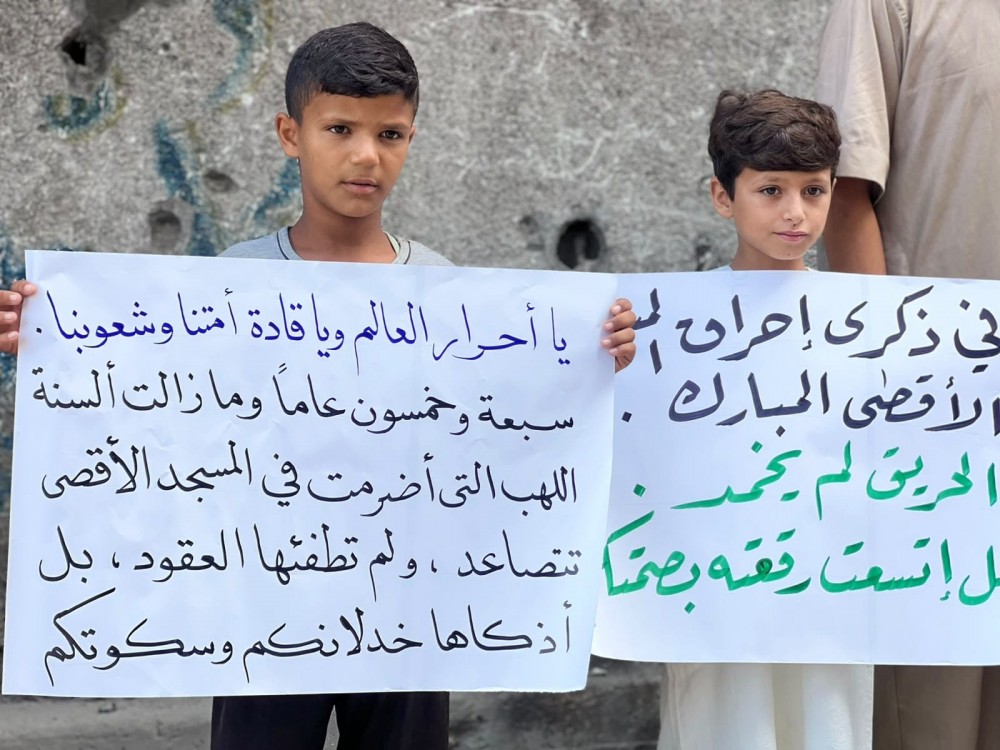 في ذكرى إحراق
الأقصى المبارك .
الحريق لم يخمد .
إتسعت رقعته
يا أحرار العالم ويا قادة أمتنا وشعوبنا .
سبعة وخمسون عاماً وما زالت ألسنة
اللهب التي أضرمت في المسجد الأقصى
تتصاعد ، ولم تطفئها العقود ، بل
أذكاها خدلانكم وسكوتكم